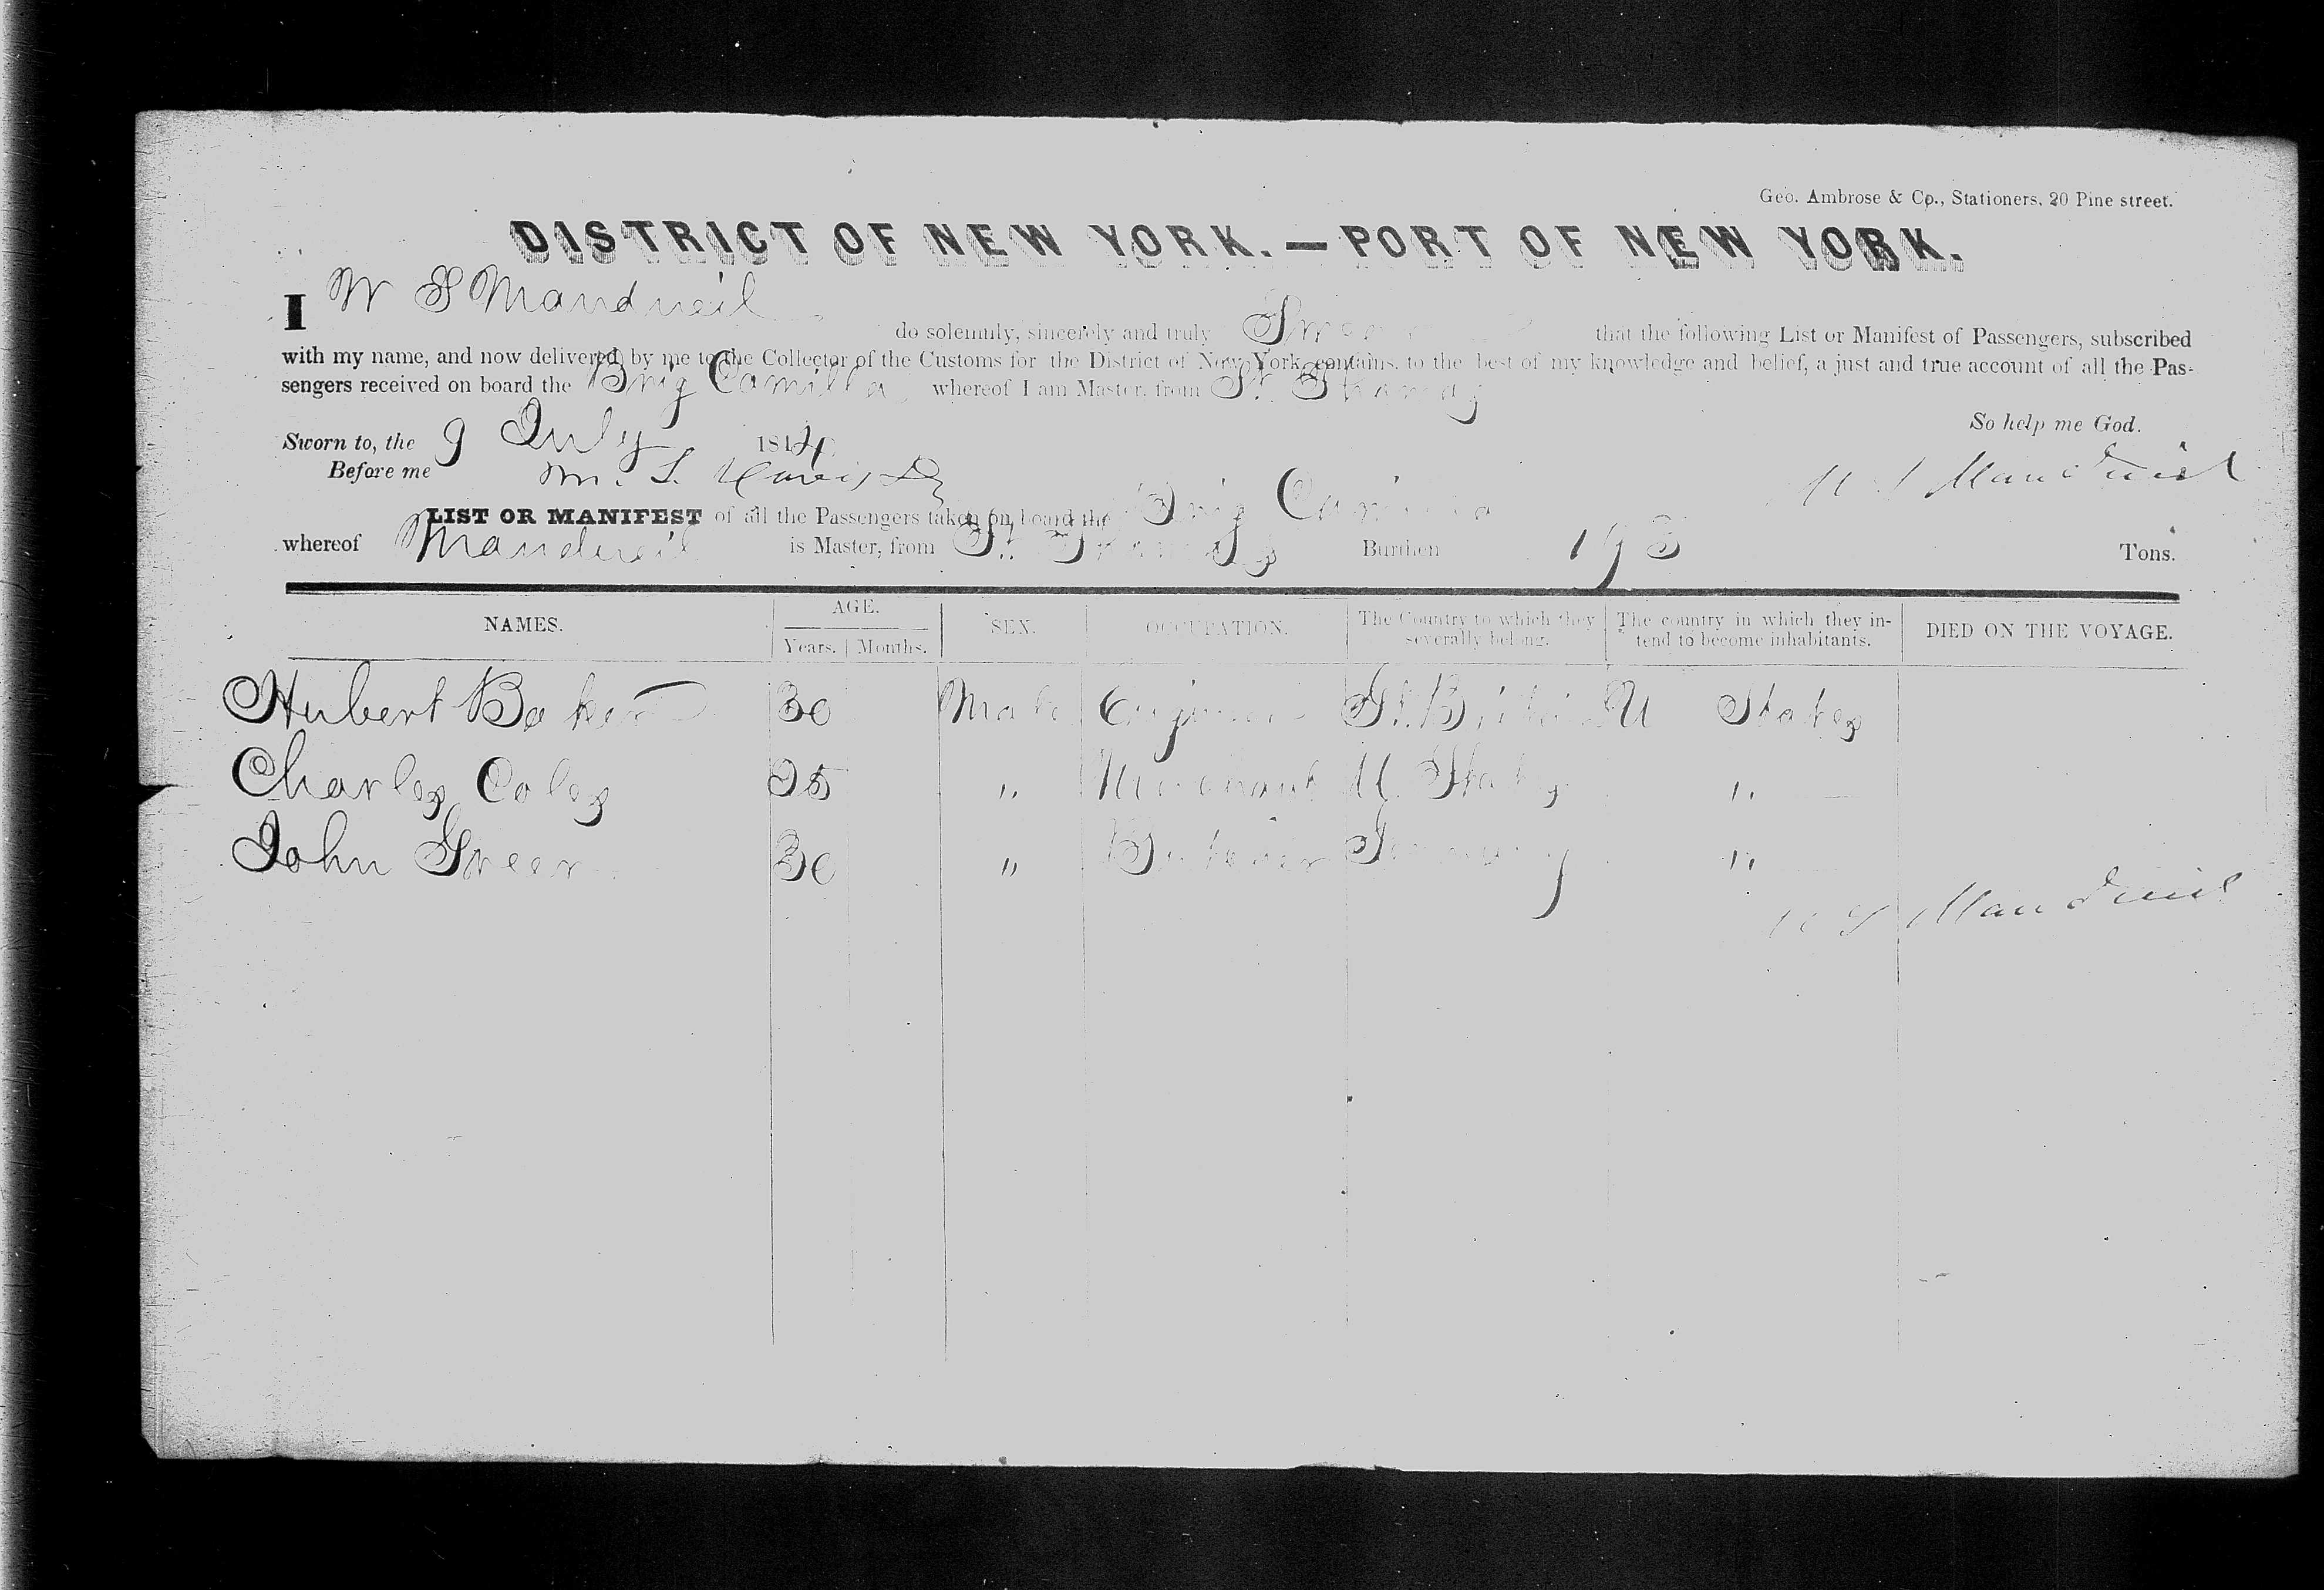 Geo. Ambrose & Co., Stationers, 20 Pine street.
DISTRICT OF NEW YORK.—PORT OF NEW YORK.
I W S Mandueil do solemnly, sincerely and truly Swear that the following List or Manifest of Passengers, subscribed
with my name, and now delivered by me to the Collector of the Customs for the District of New York, contains, to the best of my knowledge and belief, a just and true account of all the Pas-
sengers received on board the Brig Camilla whereof I am Master, from St. Thomas
So help me God.
Sworn to, the 9 July 1844
Before me
LIST OR MANIFEST of all the Passengers taken on board the Brig Camilla
whereof Mandueil is Master, from St. Thomas Burthen 193 Tons.
NAMES. AGE. SEX. OCCUPATION. The Country to which they severally belong. The country in which they in-tend to become inhabitants. DIED ON THE VOYAGE.
Years. Months.
Hubert Baker 30 Male Engineer Gt. Britain U States
Charles Coles 25 " Merchant U. States "
John Greer 30 " Butcher Germany "